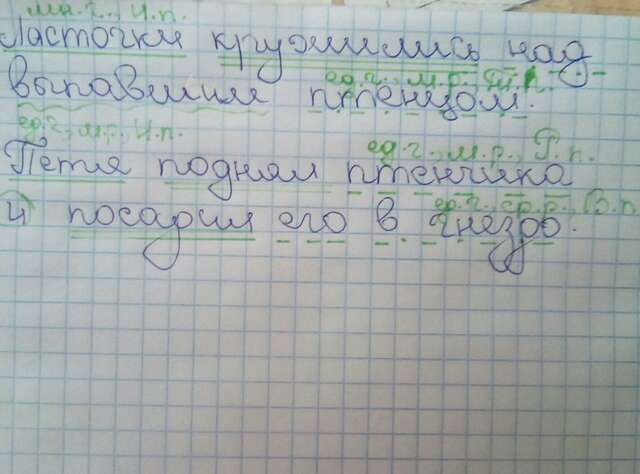 мн.ч., И.п.
Ласточки кружились над
ед.ч., м.р., Т.п.
выпавшим птенцом.
ед.ч., м.р., И.п.
ед.ч., м.р., Р.п.
Петя поднял птенчика
ед.ч., ср.р., В.п.
и посадил его в гнездо.